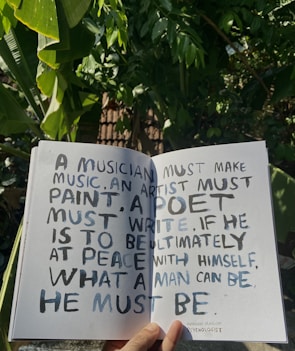 A MUSICIAN MUST MAKE
MUSIC. AN ARTIST MUST
PAINT. A POET
MUST WRITE. IF HE
IS TO BE ULTIMATELY
AT PEACE WITH HIMSELF.
WHAT A MAN CAN BE,
HE MUST BE.